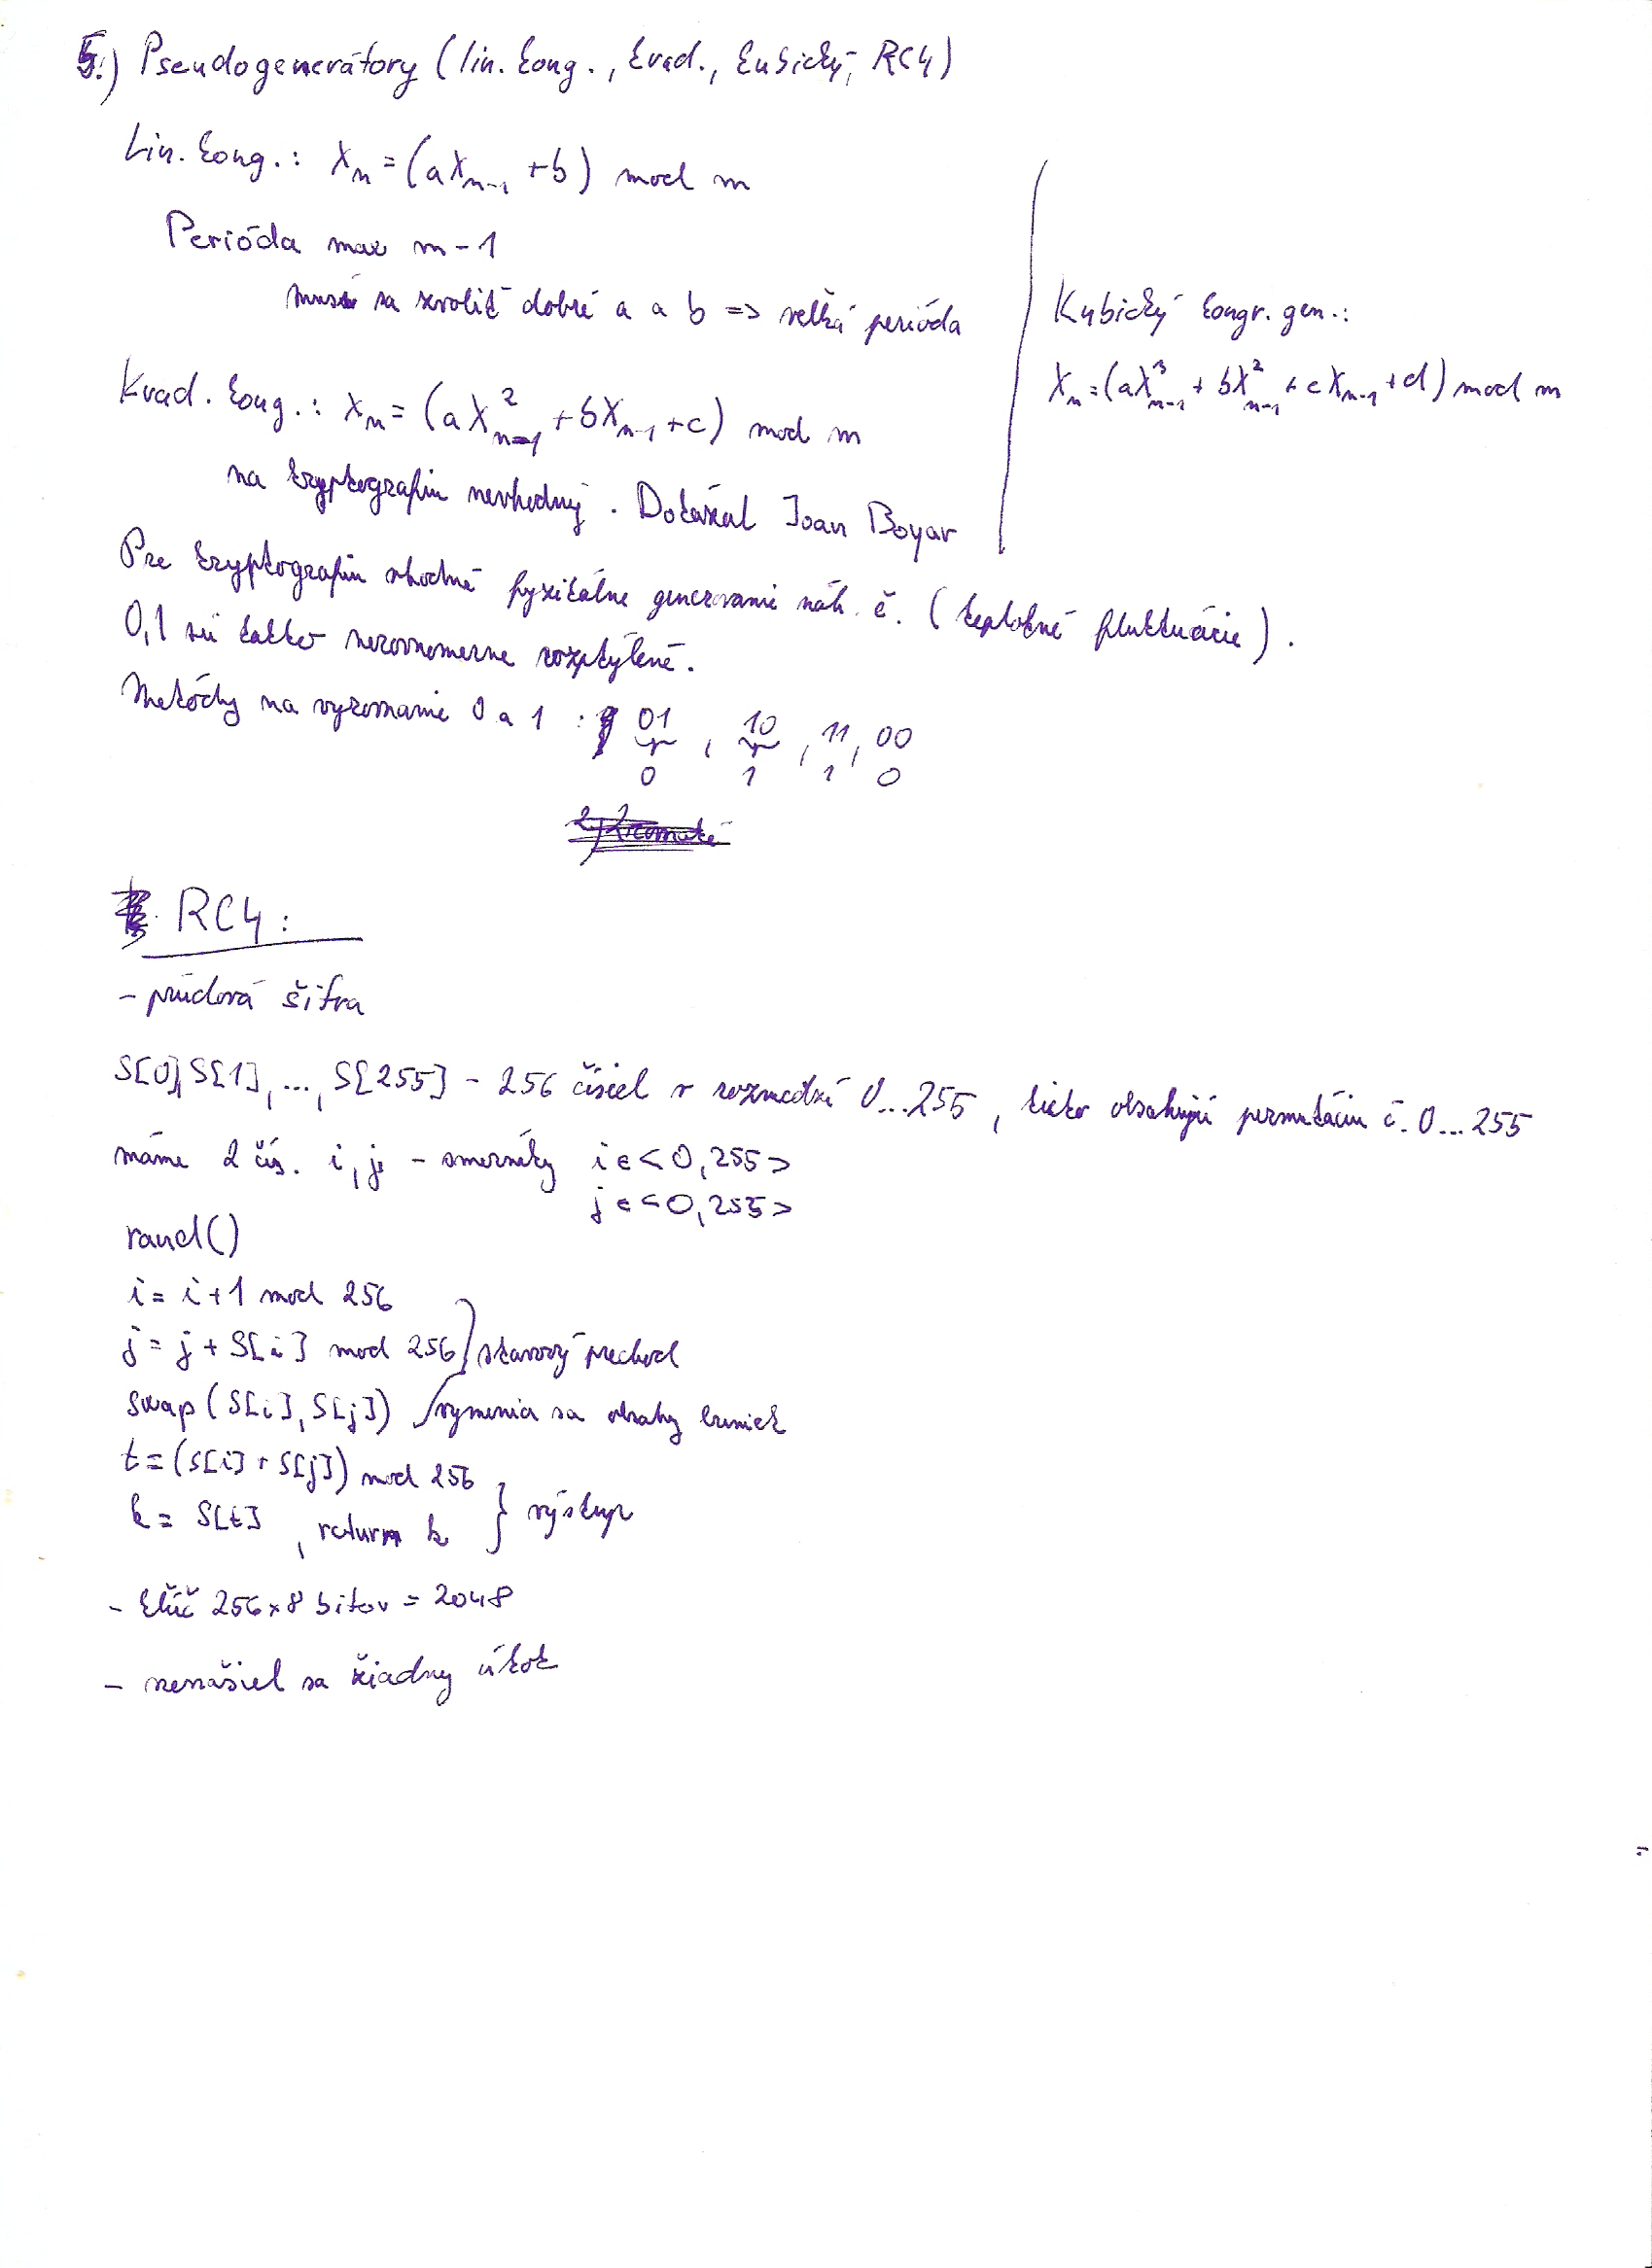 5.) Pseudogenerátory (lin. kong., kvad., kubický, RC4)
Lin. kong.: Xn = (aXn-1 + b) mod m
Perióda max m-1
musí sa zvoliť dobré a a b => veľká perióda
Kvad. kong.: Xn = (aX²n-1 + bXn-1 + c) mod m
na kryptografiu nevhodný. Dokázal Joan Boyar
Kubický kongr. gen.:
Xn = (aX³n-1 + bX²n-1 + cXn-1 + d) mod m
Pre kryptografiu vhodné fyzikálne generovanie náh. č. (teplotné fluktuácie).
0,1 sú takto nerovnomerne rozptýlené.
Metódy na vyrovnanie 0 a 1 : 01, 10, 11, 00
0 1 1 0
RC4:
- prúdová šifra
S[0], S[1], ..., S[255] - 256 čísiel v rozmedzí 0...255, tieto obsahujú permutáciu č. 0...255
máme 2 čís. i, j - smerníky i ∈ <0,255>
j ∈ <0,255>
rand()
i = i+1 mod 256
j = j + S[i] mod 256 } stavový prechod
swap (S[i], S[j]) vymenia sa obsahy
t = (S[i] + S[j]) mod 256
k = S[t], return k } výstup
- kľúč 256 x 8 bitov = 2048
- nenašiel sa žiadny útok